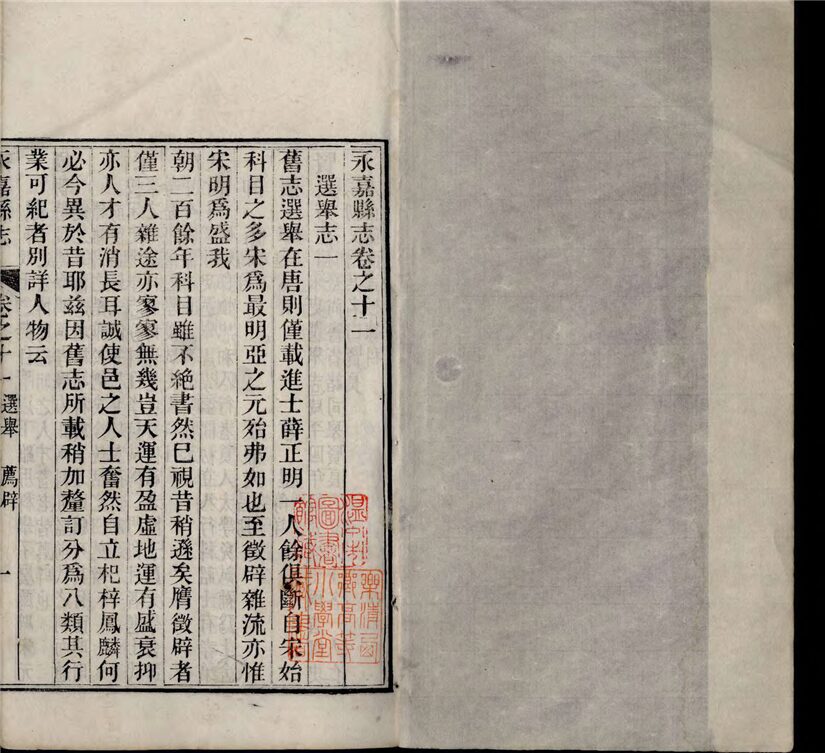 永嘉縣志卷之十一
選舉志一
舊志選舉在唐則僅載進士薛正明一人餘俱斷自宋始
科目之多宋爲最明亞之元殆弗如也至徵辟雜流亦惟
宋明爲盛我
朝二百餘年科目雖不絶書然已視昔稍遜矣膺徵辟者
僅三人雜途亦寥寥無幾豈天運有盈虛地運有盛衰抑
亦人才有消長耳誠使邑之人士奮然自立杞梓鳳麟何
必今異於昔耶兹因舊志所載稍加釐訂分爲八類其行
業可紀者別詳人物云
永嘉縣志 卷之十一 選舉 薦辟 一